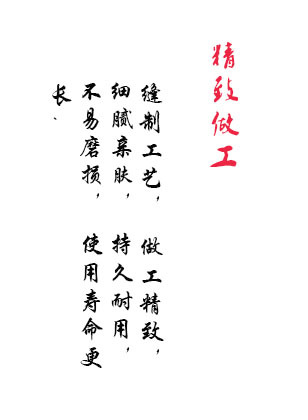 精致做工
缝制工艺，做工精致，
细腻亲肤，持久耐用，
不易磨损，使用寿命更
长、